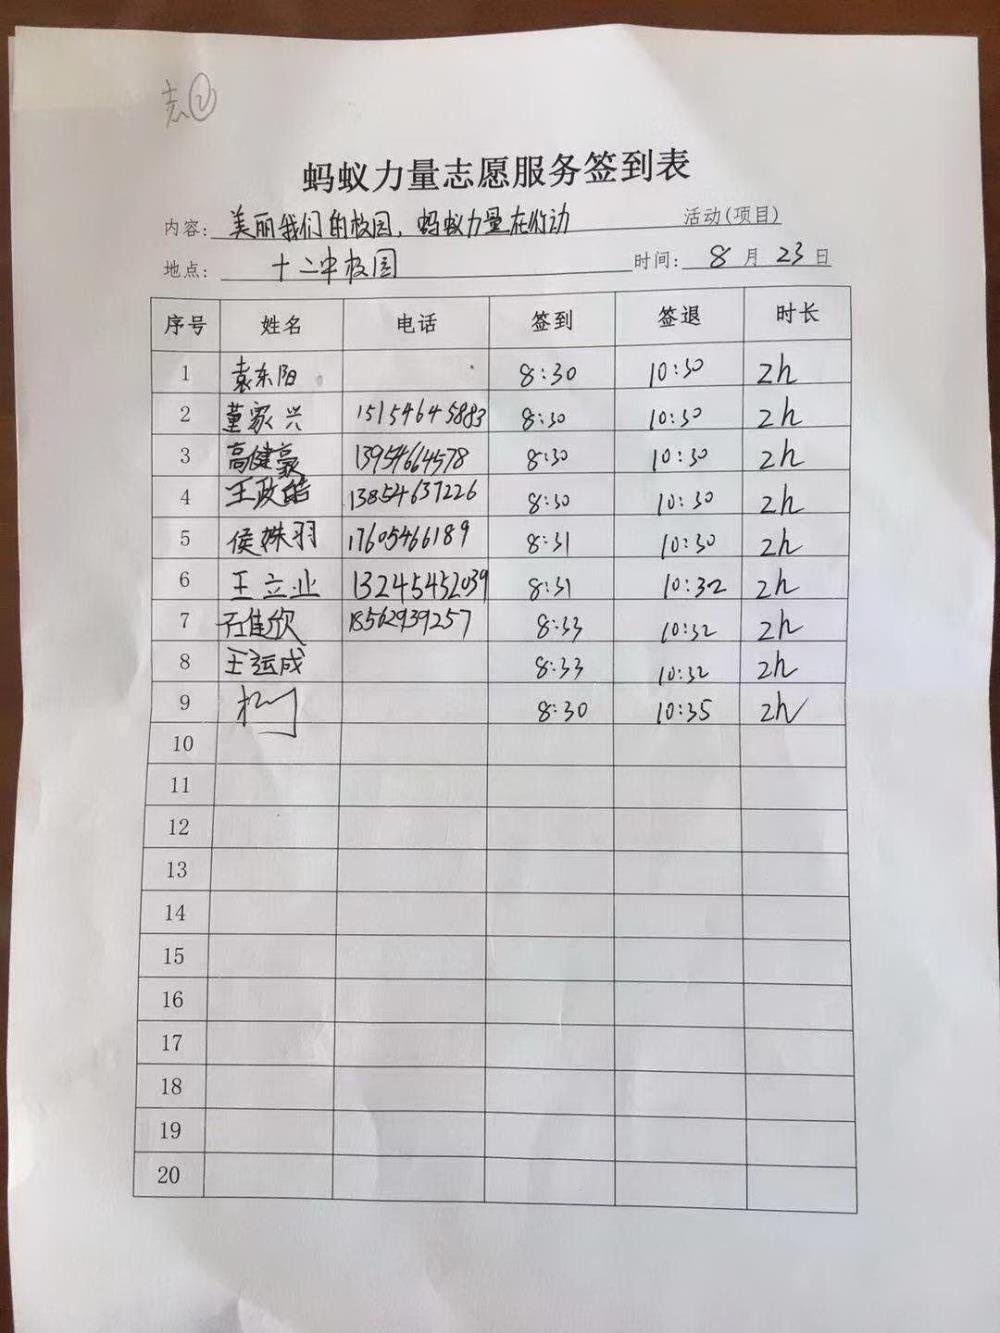 志②
蚂蚁力量志愿服务签到表
内容: 美丽我们的校园,蚂蚁力量在行动 活动(项目)
地点: 十二中校园 时间: 8 月 23 日
序号 姓名 电话 签到 签退 时长
1 袁东阳 8:30 10:30 2h
2 董家兴 15154645883 8:30 10:30 2h
3 高健豪 13954664578 8:30 10:30 2h
4 王政皓 13854637226 8:30 10:30 2h
5 侯姝羽 17605466189 8:31 10:30 2h
6 王立业 13245452039 8:31 10:32 2h
7 石佳欣 18562939257 8:33 10:32 2h
8 王运成 8:33 10:32 2h
9 8:30 10:35 2h
10
11
12
13
14
15
16
17
18
19
20